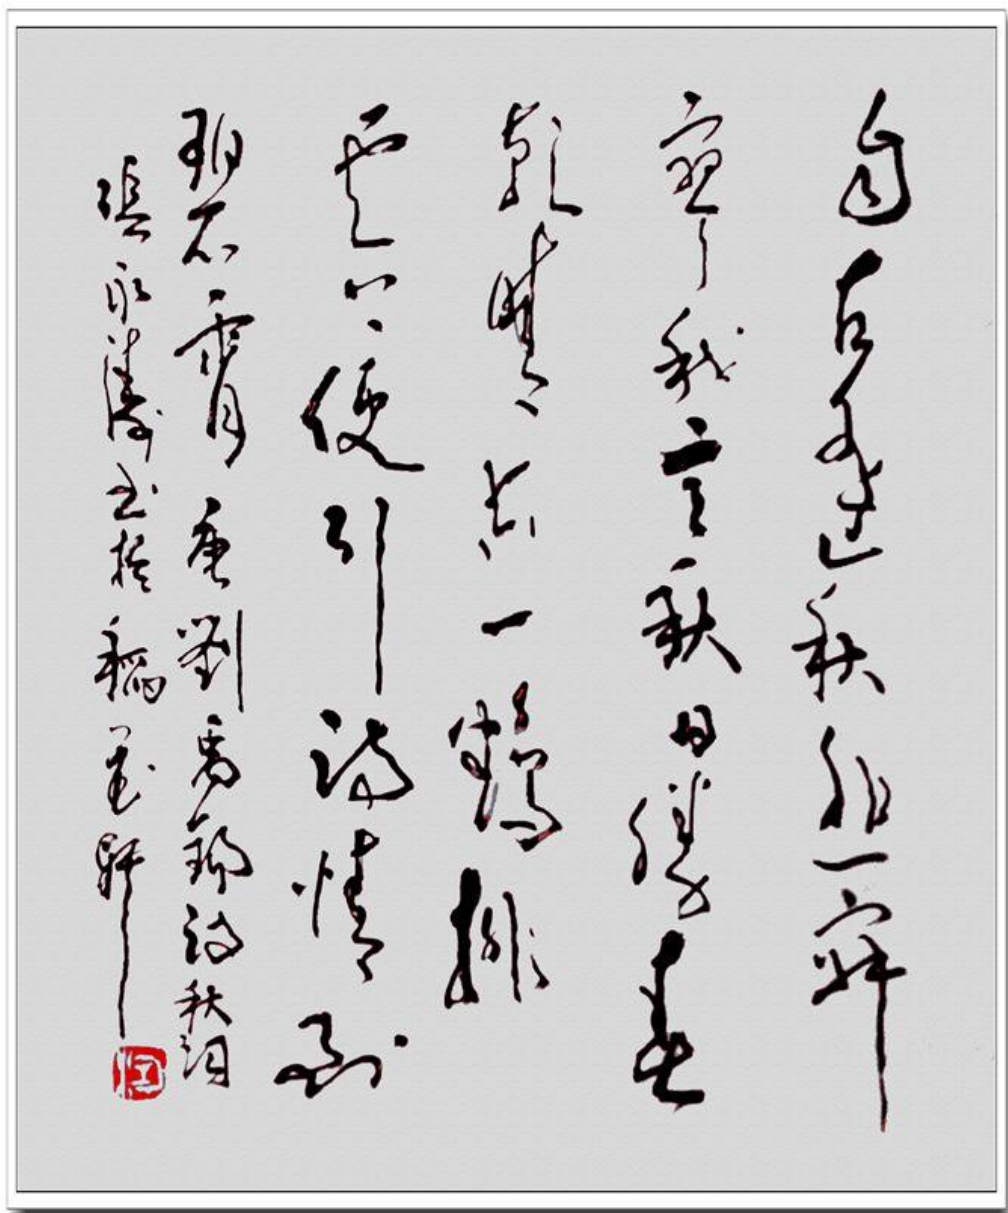 自古逢秋悲寂
寥我言秋日勝春
朝晴空一鶴排
雲上便引詩情到
碧霄 唐劉禹錫詩秋詞
張永濤書於稻軒